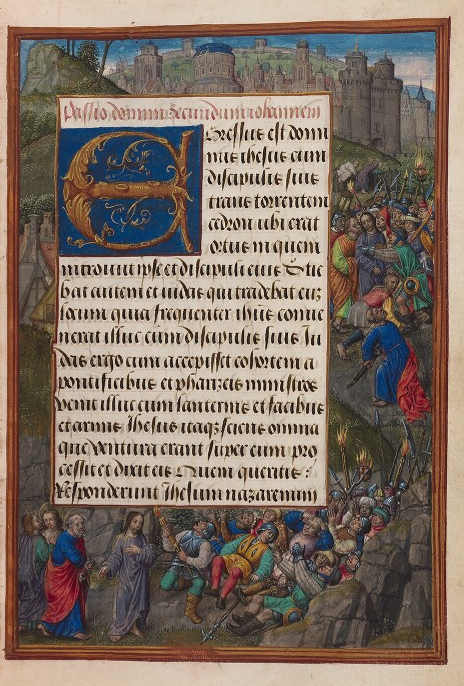 Passio domini secundum iohannem
Egressus est domi
nus ihesus cum
discipulis suis
trans torrentem
cedron ubi erat
ortus in quem
introivit ipse et discipuli eius Scie
bat autem et iudas qui tradebat eum
locum quia frequenter ihesus conve
nerat illuc cum discipulis suis Iu
das ergo cum accepisset cohortem a
pontificibus et phariseis ministros
venit illuc cum lanternis et facibus
et armis Ihesus itaque sciens omnia
que ventura erant super eum pro
cessit et dixit eis Quem queritis :
Responderunt Ihesum nazarenum